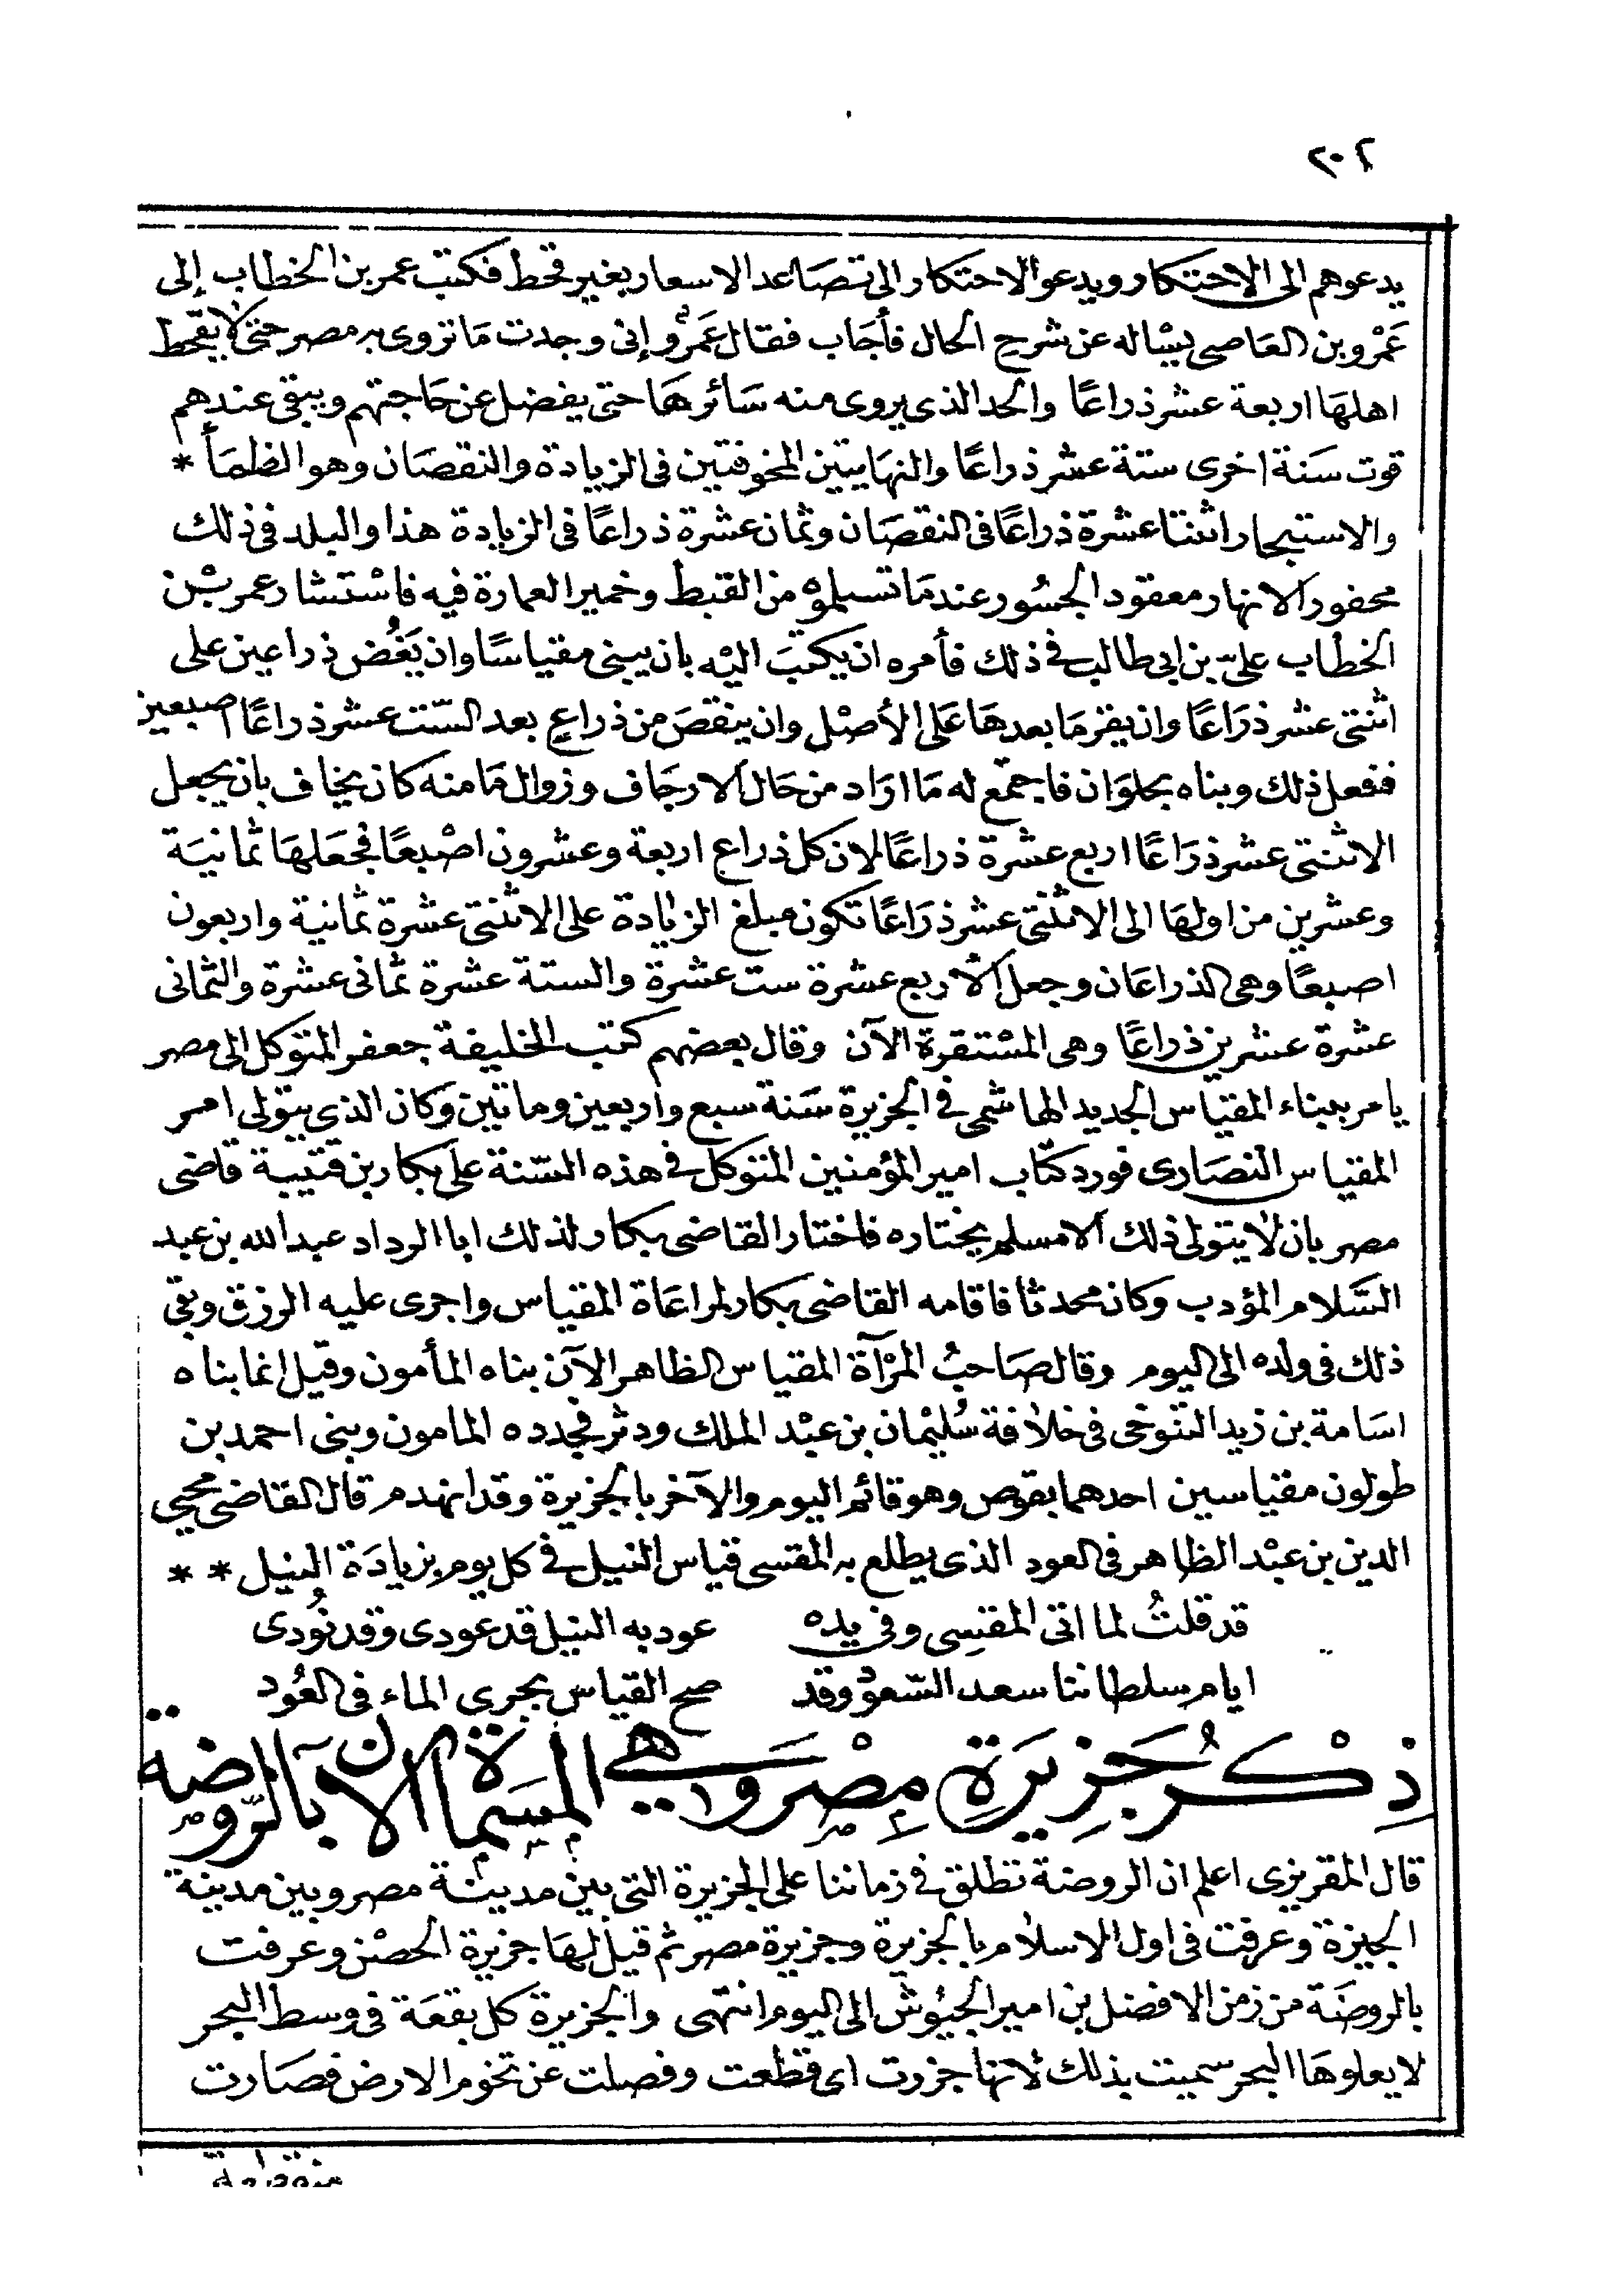 ٢٠٢
يدعوهم الى الاحتكار ويدعو الاحتكار الى تصَاعد الاسعار بغير قحط فكتب عمر بن الخطاب إلى
عَمْرو بن العَاصى يسْاله عن شرح الحال فأجَاب فقال عَمرٌو إنى وجدت مَا تروى به مصر حتى لا يقحط
اهلهَا اربعة عشر ذراعًا والحد الذى يروى منه سَائرهَا حتى يفضل عن حَاجتهم ويبقى عندهم
قوت سَنة اخرى ستة عشر ذراعًا والنهَايتين المخوفتين فى الزيادة والنقصَان وهو الظمَأ *
والاستبحار اثنتا عشرة ذراعًا فى النقصَان وثمان عشرة ذراعًا فى الزيادة هذا والبلد فى ذلك
محفور الانهار معقود الجسُور عند مَا تسلموه من القبط وخمير العمارة فيه فاسْتشار عمر بْن
الخطاب علىّ بن ابى طالب فى ذلك فأمره ان يكتبَ اليْه بان يبنى مقياسًا وان يَغُض ذراعين على
اثنتى عشر ذرَاعًا وان يقر مَا بعدهَا عَلى الأصْل وان ينقصَ من ذراعٍ بعد السّت عشر ذراعًا اصبعين
ففعل ذلك وبناه بحلوَان فاجتمع له مَا ارَاد من حَال الارجَاف وزوال مَا منه كان يخاف بان يجعل
الاثنتى عشر ذرَاعًا اربع عشرة ذراعًا لان كل ذراع اربعة وعشرون اصْبعًا فجعَلهَا ثمانيَة
وعشرين من اولهَا الى الاثنتى عشر ذرَاعًا تكون مبلغ الزيادة على الاثنتى عشرة ثمانية واربعون
اصبعًا وهى الذراعَان وجعل الأربع عشرة ست عشرة والستة عشرة ثمانى عشرة والثمانى
عشرة عشرين ذراعًا وهى المسْتقرة الآن وقال بعضهم كتب الخليفة جعفر المتوكل الى مصر
يامر ببناء المقياس الجديد الهاشمى فى الجزيرة سَنة سبع واربعين ومائتين وكان الذى يتولى امر
المقياس النصَارى فورد كتاب امير المؤمنين المتوكل فى هذه السّنة على بكار بن قتيبة قاضى
مصر بان لا يتولى ذلك الا مسلم يختاره فاختار القاضى بكار لذلك ابا الرداد عبد الله بن عبد
السّلام المؤدب وكان محدثا فاقامه القاضى بكار لمراعَاة المقياس واجرى عليه الرزق وبقى
ذلك فى ولده الى اليوم وقال صَاحبُ المرْآة المقياس الظاهر الآن بناه المأمون وقيل انما بناه
اسَامة بن زيد التنوخى فى خلافة سُليْمان بن عبْد الملك ودثر فجدده المامون وبنى احمد بن
طولون مقياسين احدهما بقوص وهو قائم اليوم والآخر بالجزيرة وقد انهدم قال القاضى محيى
الدين بن عبْد الظاهر فى العود الذى يطلع به المقسى قياس النيل فى كل يوم بزيادَة النيل * *
قد قلتُ لما اتى المقسِى وفى يده عود به النيل قد عودى وقد نُودى
ايام سلطاننا سعد السّعود وقد صح القياس بجرى الماء فى العُود
ذِكْرُ جَزِيرَةِ مِصْرَ وَهِيَ المسَماة الآن بالرّوضة
قال المقريزى اعلم ان الروضة تطلق فى زماننا على الجزيرة التى بين مدينة مصر وبين مدينة
الجيزة وعرفت فى اول الاسلام بالجزيرة وجزيرة مصر ثم قيل لهَا جزيرة الحصْن وعرفت
بالروضَة من زمن الافضل بن امير الجيُوش الى اليوم انتهى والجزيرة كل بقعَة فى وسط البحر
لا يعلوهَا البحر سميت بذلك لانها جزرت اى قطعت وفصلت عن تخوم الارض فصَارت
منقطعة